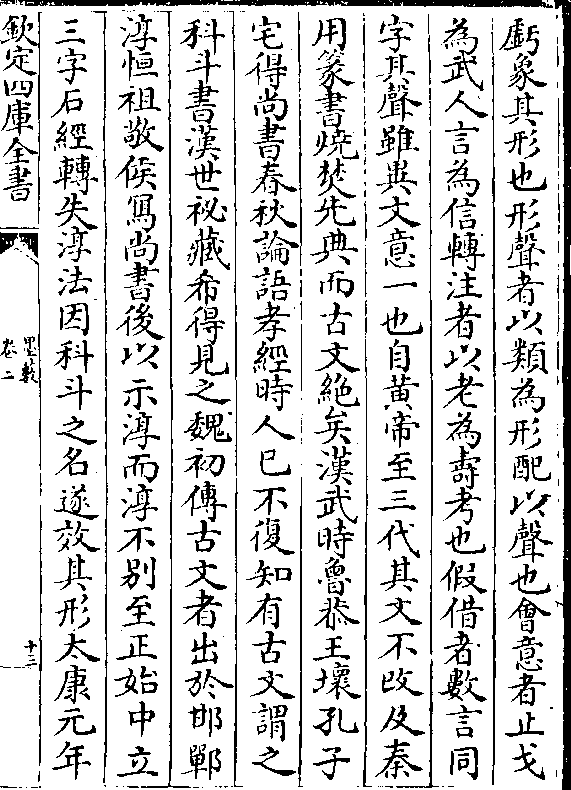 虧象其形也形聲者以類為形配以聲也會意者止戈
為武人言為信轉注者以老為壽考也假借者數言同
字其聲雖異文意一也自黄帝至三代其文不改及秦
用篆書焼焚先典而古文絶矣漢武時魯恭王壞孔子
宅得尚書春秋論語孝經時人已不復知有古文謂之
科斗書漢世祕藏希得見之魏初傳古文者出於邯鄲
淳恒祖敬侯寫尚書後以示淳而淳不别至正始中立
三字石經轉失淳法因科斗之名遂效其形太康元年
欽定四庫全書
墨藪
卷二
十三